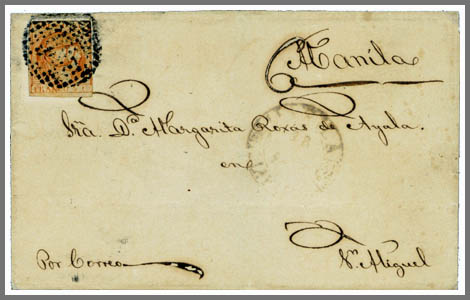 Manila
Sra. Da. Margarita Roxas de Ayala.
en
Por Correo
Sn. Miguel